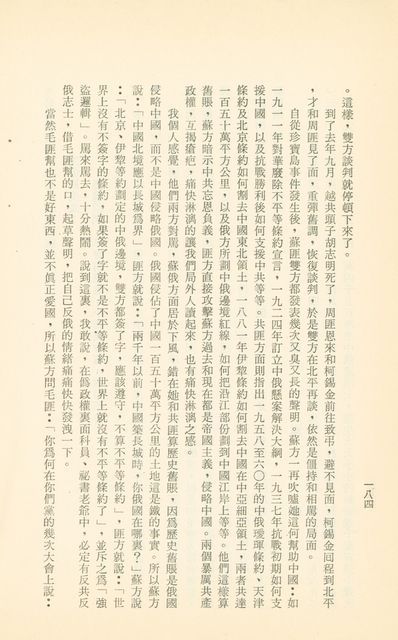 。這樣，雙方談判就停頓下來了。
到了去年九月，越共頭子胡志明死了，周匪恩來和柯錫金前往致弔，避不見面，柯錫金回程到北平
，才和周匪見了面，重彈舊調，恢復談判，於是雙方在北平再談，依然是僵持和相罵的局面。
自從珍寶島事件發生後，蘇匪雙方都發表幾次又臭又長的聲明。蘇方一再吹噓她這何幫助中國：如
一九一一年對華廢除不平等條約宣言，一九二四年訂立中俄懸案解決大綱，一九三七年抗戰初期如何支
援中國，以及抗戰勝利後如何支援中共等等。共匪方面則指出一九五八至六〇年的中俄璦琿條約、天津
條約及北京條約如何割去中國東北領土，一八八一年伊犂條約如何割去中國在中亞細亞領土，兩者共達
一百五十萬平方公里，以及俄方所劃中俄邊境紅線，如何把沿江部份劃到中國江岸上等等。他們這樣算
舊賬，蘇方暗示中共忘恩負義，匪方直接攻擊蘇方過去和現在都是帝國主義，侵略中國。兩個暴厲共產
政權，互揭瘡疤，痛快淋漓的讓我們局外人讀起來，也有痛快淋漓之感。
我個人感覺，他們兩方對罵，蘇俄方面居於下風，錯在她和共匪算歷史舊賬，因為歷史舊賬是俄國
侵略中國，而不是中國侵略俄國。俄國侵佔了中國一百五十萬平方公里的土地這是鐵的事實。所以蘇方
說：「中國北境應以長城為界」，匪方就說：「兩千年以前，中國築長城時，你俄國在哪裏？」蘇方說
：「北京、伊犂等約劃定的中俄邊境，雙方都簽了字，應該遵守，不算不平等條約」，匪方就說：「世
界上沒有不簽字的條約，如果簽了字就不是不平等條約，世界上就沒有不平等條約了」，並斥之為「強
盜邏輯」。罵來罵去，十分熱鬧。說到這裏，我敢說，在偽政權裏面科員、祕書老爺中，必定有反共反
俄志士，借毛匪幫的口，起草聲明，把自己反俄的情緒痛痛快快發洩一下。
當然毛匪幫也不是好東西，並不眞正愛國，所以蘇方問毛匪：「你為何在你們黨的幾次大會上說：
一八四